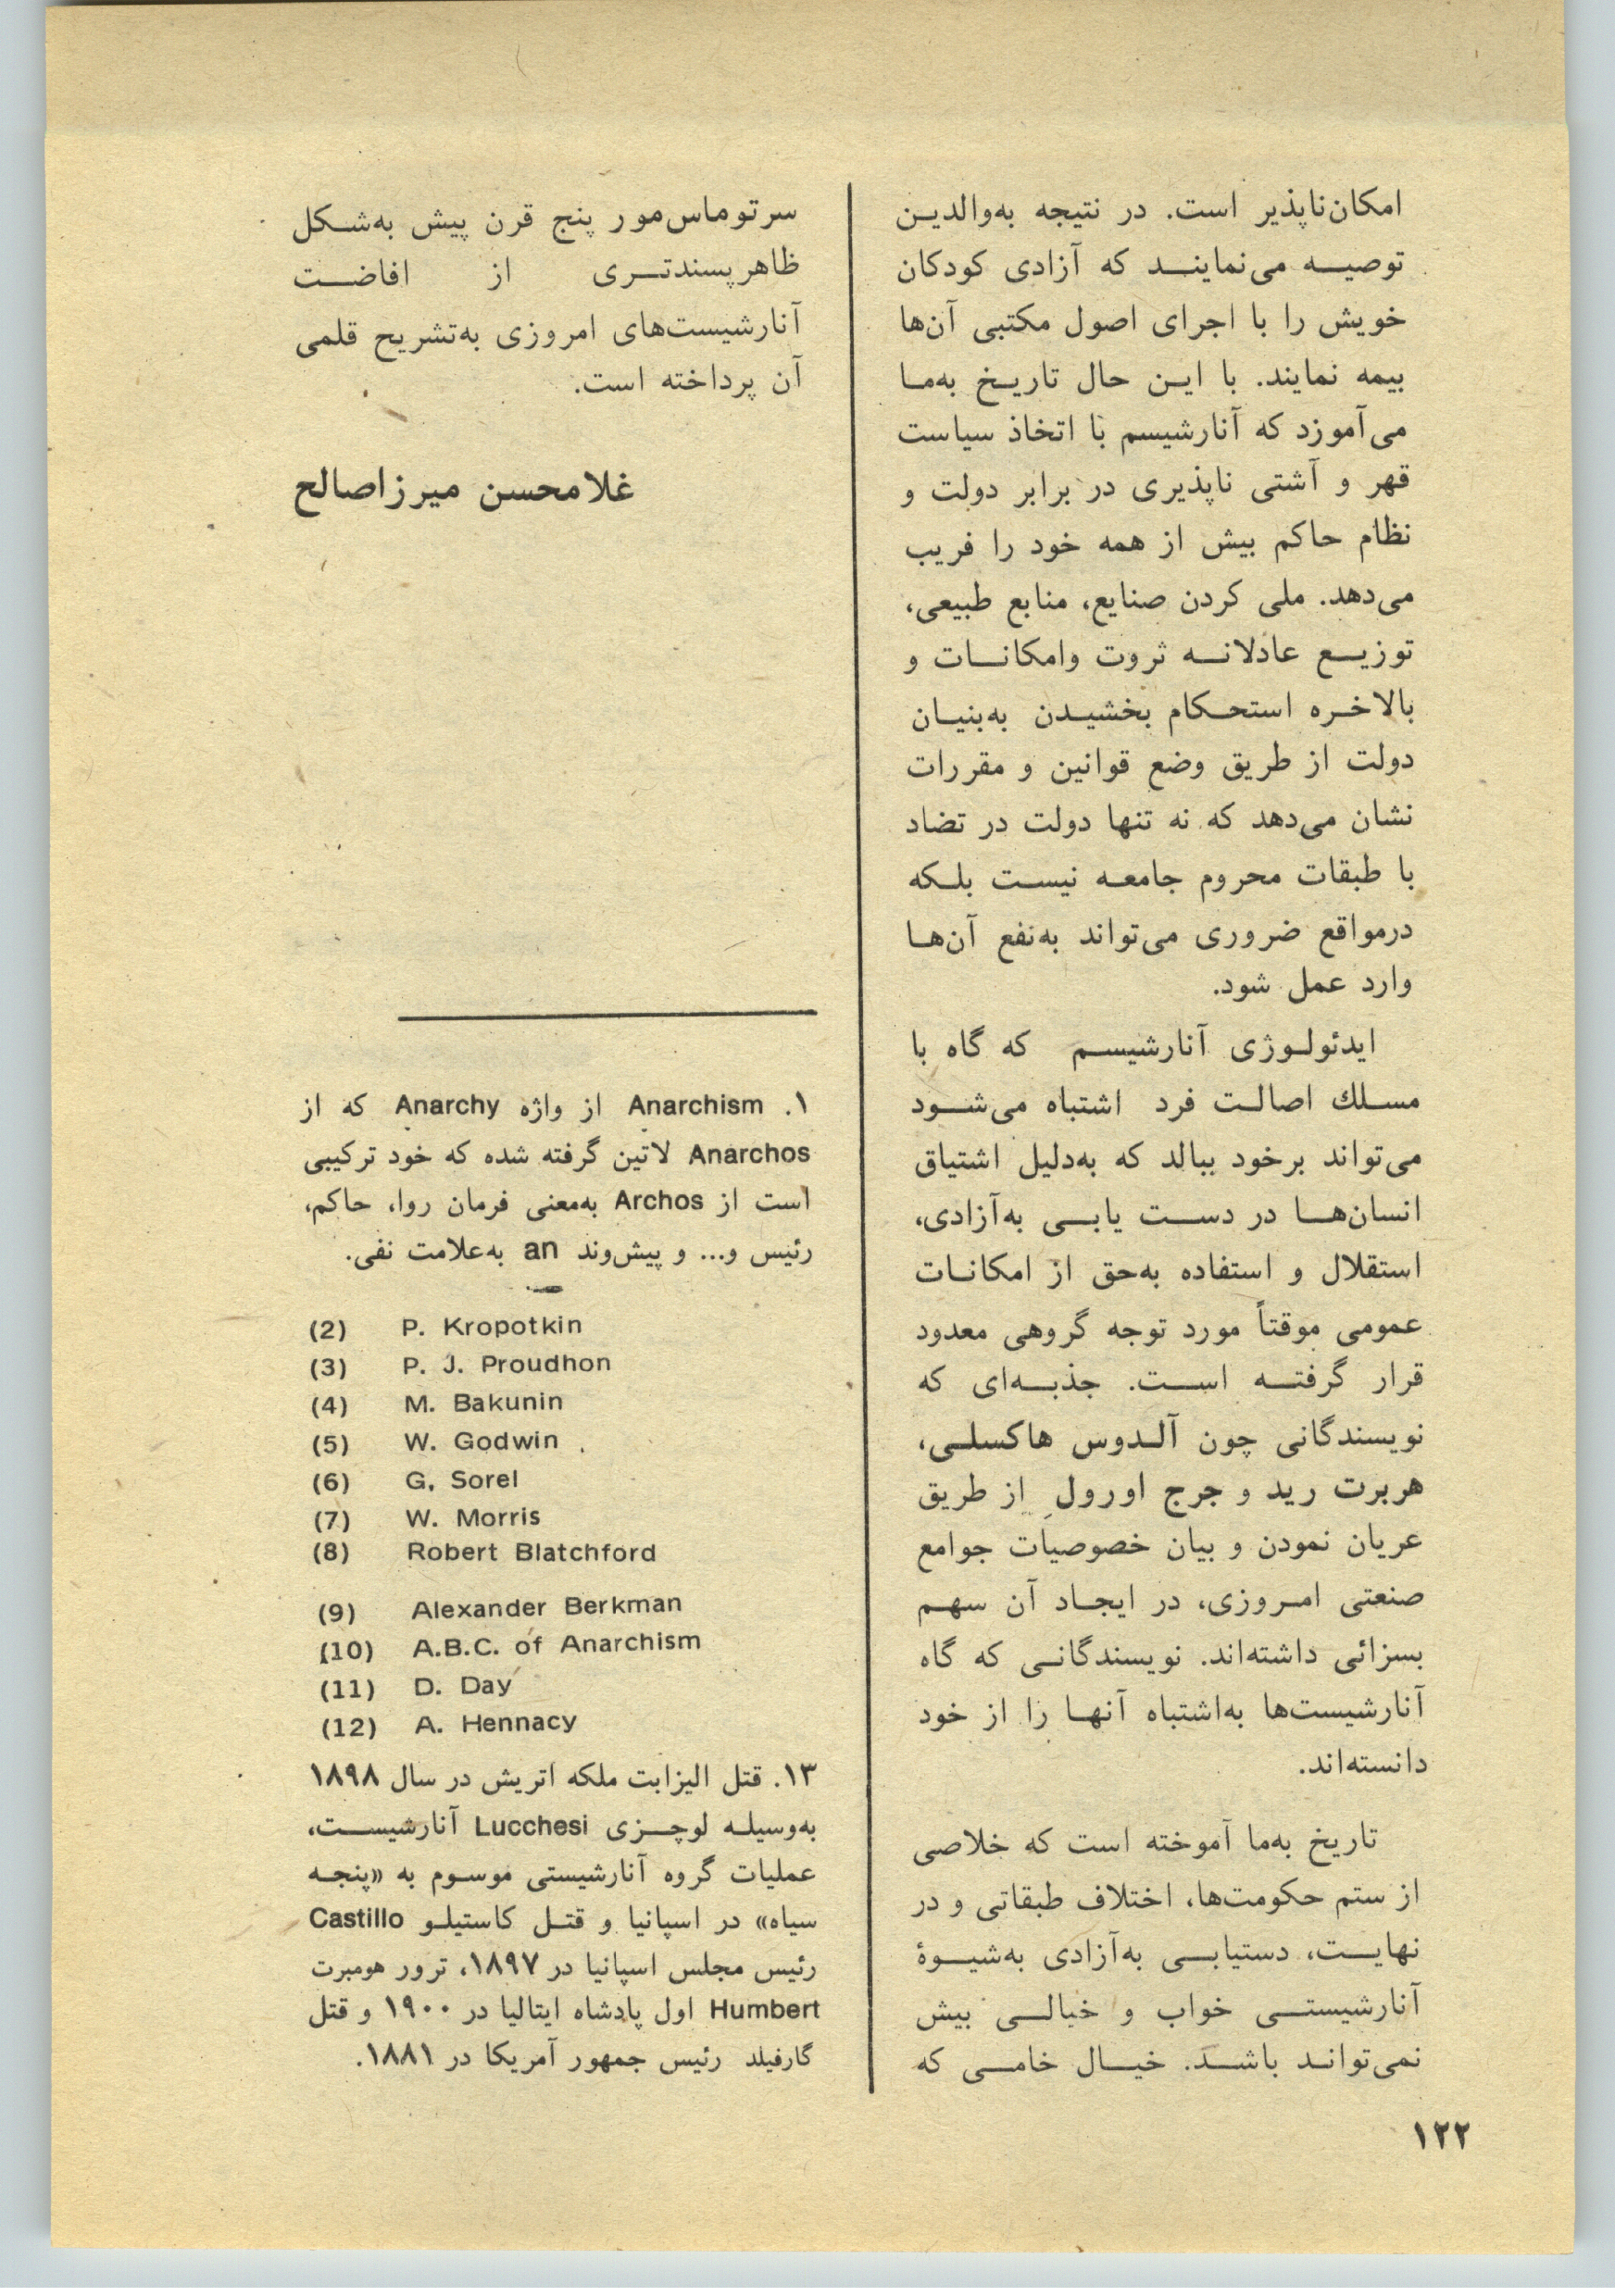 امکان‌ناپذیر است. در نتیجه به‌والدین
توصیه می‌نمایند که آزادی کودکان
خویش را با اجرای اصول مکتبی آن‌ها
بیمه نمایند. با این حال تاریخ به‌ما
می‌آموزد که آنارشیسم با اتخاذ سیاست
قهر و آشتی ناپذیری در برابر دولت و
نظام حاکم بیش از همه خود را فریب
می‌دهد. ملی کردن صنایع، منابع طبیعی،
توزیع عادلانه ثروت وامکانات و
بالاخره استحکام بخشیدن به‌بنیان
دولت از طریق وضع قوانین و مقررات
نشان می‌دهد که نه تنها دولت در تضاد
با طبقات محروم جامعه نیست بلکه
درمواقع ضروری می‌تواند به‌نفع آن‌ها
وارد عمل شود.
ایدئولوژی آنارشیسم که گاه با
مسلك اصالت فرد اشتباه می‌شود
می‌تواند برخود ببالد که به‌دلیل اشتیاق
انسان‌ها در دست یابی به‌آزادی،
استقلال و استفاده به‌حق از امکانات
عمومی موقتاً مورد توجه گروهی معدود
قرار گرفته است. جذبه‌ای که
نویسندگانی چون آلدوس هاکسلی،
هربرت رید و جرج اورول از طریق
عریان نمودن و بیان خصوصیات جوامع
صنعتی امروزی، در ایجاد آن سهم
بسزائی داشته‌اند. نویسندگانی که گاه
آنارشیست‌ها به‌اشتباه آنها را از خود
دانسته‌اند.
تاریخ به‌ما آموخته است که خلاصی
از ستم حکومت‌ها، اختلاف طبقاتی و در
نهایت، دستیابی به‌آزادی به‌شیوهٔ
آنارشیستی خواب و خیالی بیش
نمی‌تواند باشد. خیال خامی که
سرتوماس‌مور پنج قرن پیش به‌شکل
ظاهرپسندتری از افاضت
آنارشیست‌های امروزی به‌تشریح قلمی
آن پرداخته است.
غلامحسن میرزاصالح
۱. Anarchism از واژه Anarchy که از
Anarchos لاتین گرفته شده که خود ترکیبی
است از Archos به‌معنی فرمان روا، حاکم،
رئیس و... و پیش‌وند an به‌علامت نفی.
(2) P. Kropotkin
(3) P. J. Proudhon
(4) M. Bakunin
(5) W. Godwin
(6) G, Sorel
(7) W. Morris
(8) Robert Blatchford
(9) Alexander Berkman
(10) A.B.C. of Anarchism
(11) D. Day
(12) A. Hennacy
۱۳. قتل الیزابت ملکه اتریش در سال ۱۸۹۸
به‌وسیله لوچزی Lucchesi آنارشیست،
عملیات گروه آنارشیستی موسوم به «پنجه
سیاه» در اسپانیا و قتل کاستیلو Castillo
رئیس مجلس اسپانیا در ۱۸۹۷، ترور هومبرت
Humbert اول پادشاه ایتالیا در ۱۹۰۰ و قتل
گارفیلد رئیس جمهور آمریکا در ۱۸۸۱.
۱۲۲